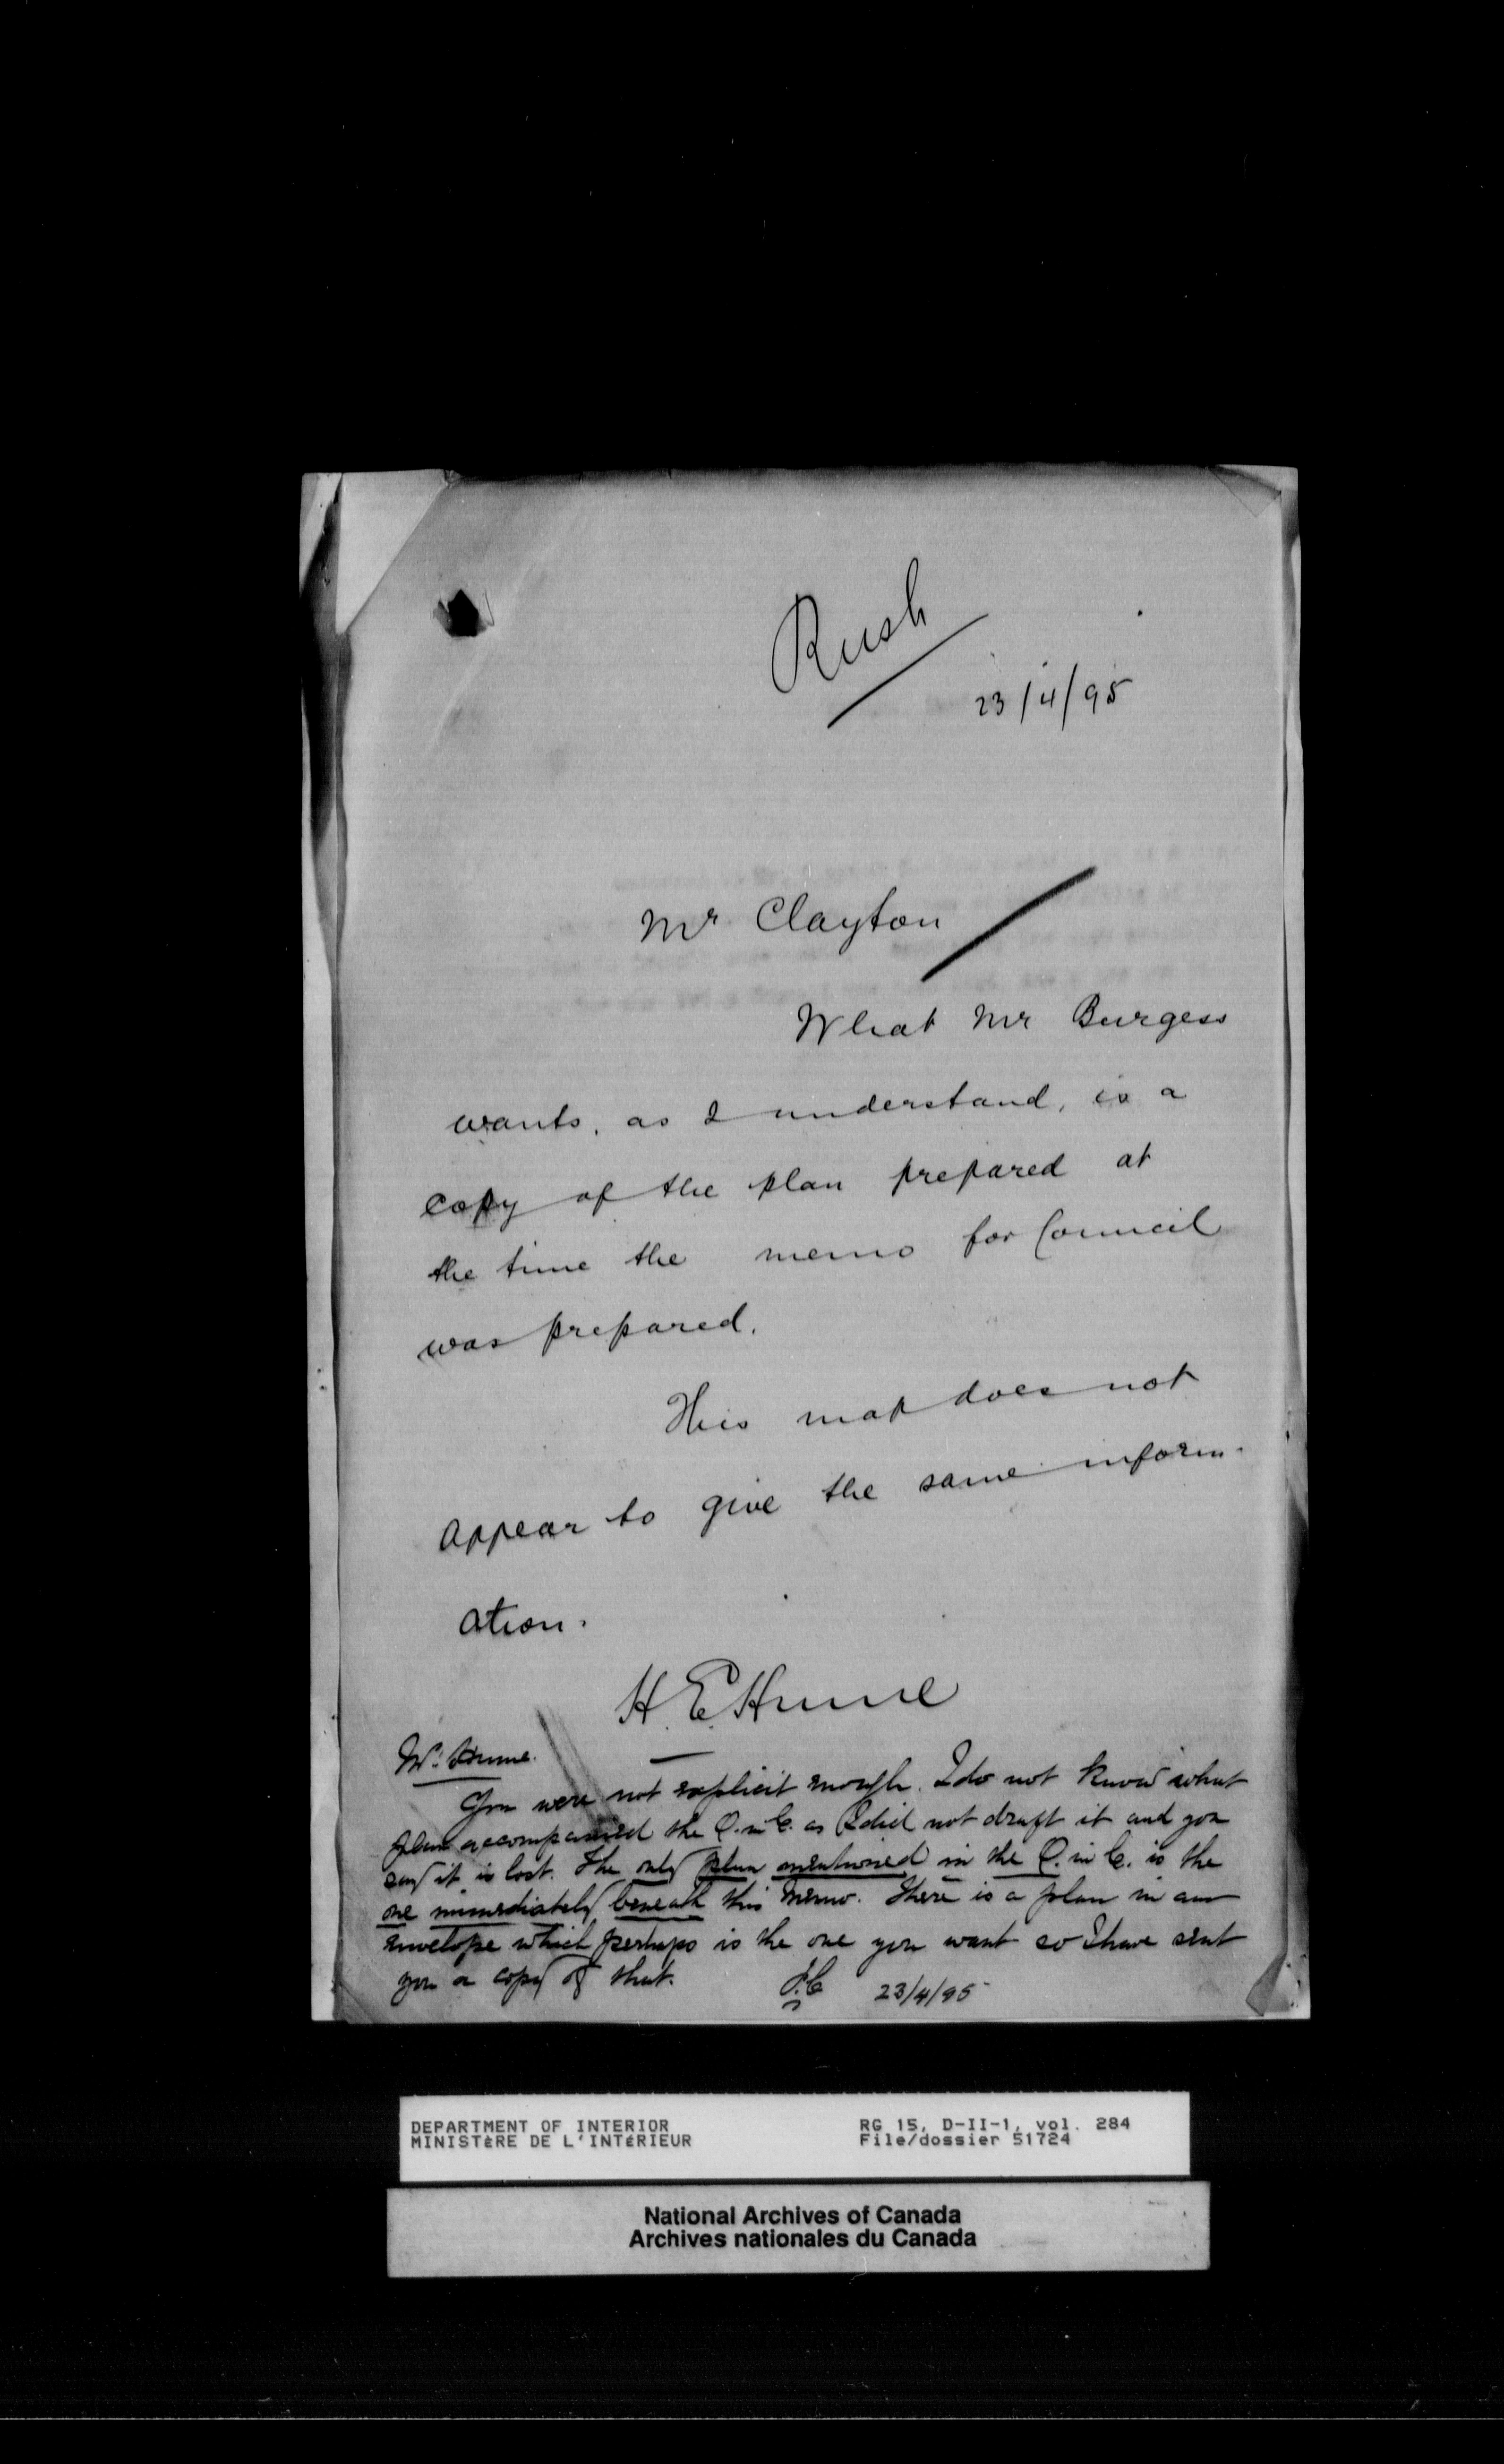 Rush
23/4/95
Mr Clayton
What Mr Burgess
wants, as I understand, is a
copy of the plan prepared at
the time the memo for Council
was prepared.
This map does not
appear to give the same inform-
ation.
H. E. Hume
Mr. Hume.
You were not explicit enough. I do not know what
plan accompanied the O. in C. as I did not draft it and you
say it is lost. The only plan mentioned in the O. in C. is the
one immediately beneath this memo. There is a plan in an
envelope which perhaps is the one you want so I have sent
you a copy of that.
23/4/95
DEPARTMENT OF INTERIOR
MINISTÈRE DE L'INTÉRIEUR
RG 15, D-II-1, vol. 284
File/dossier 51724
National Archives of Canada
Archives nationales du Canada